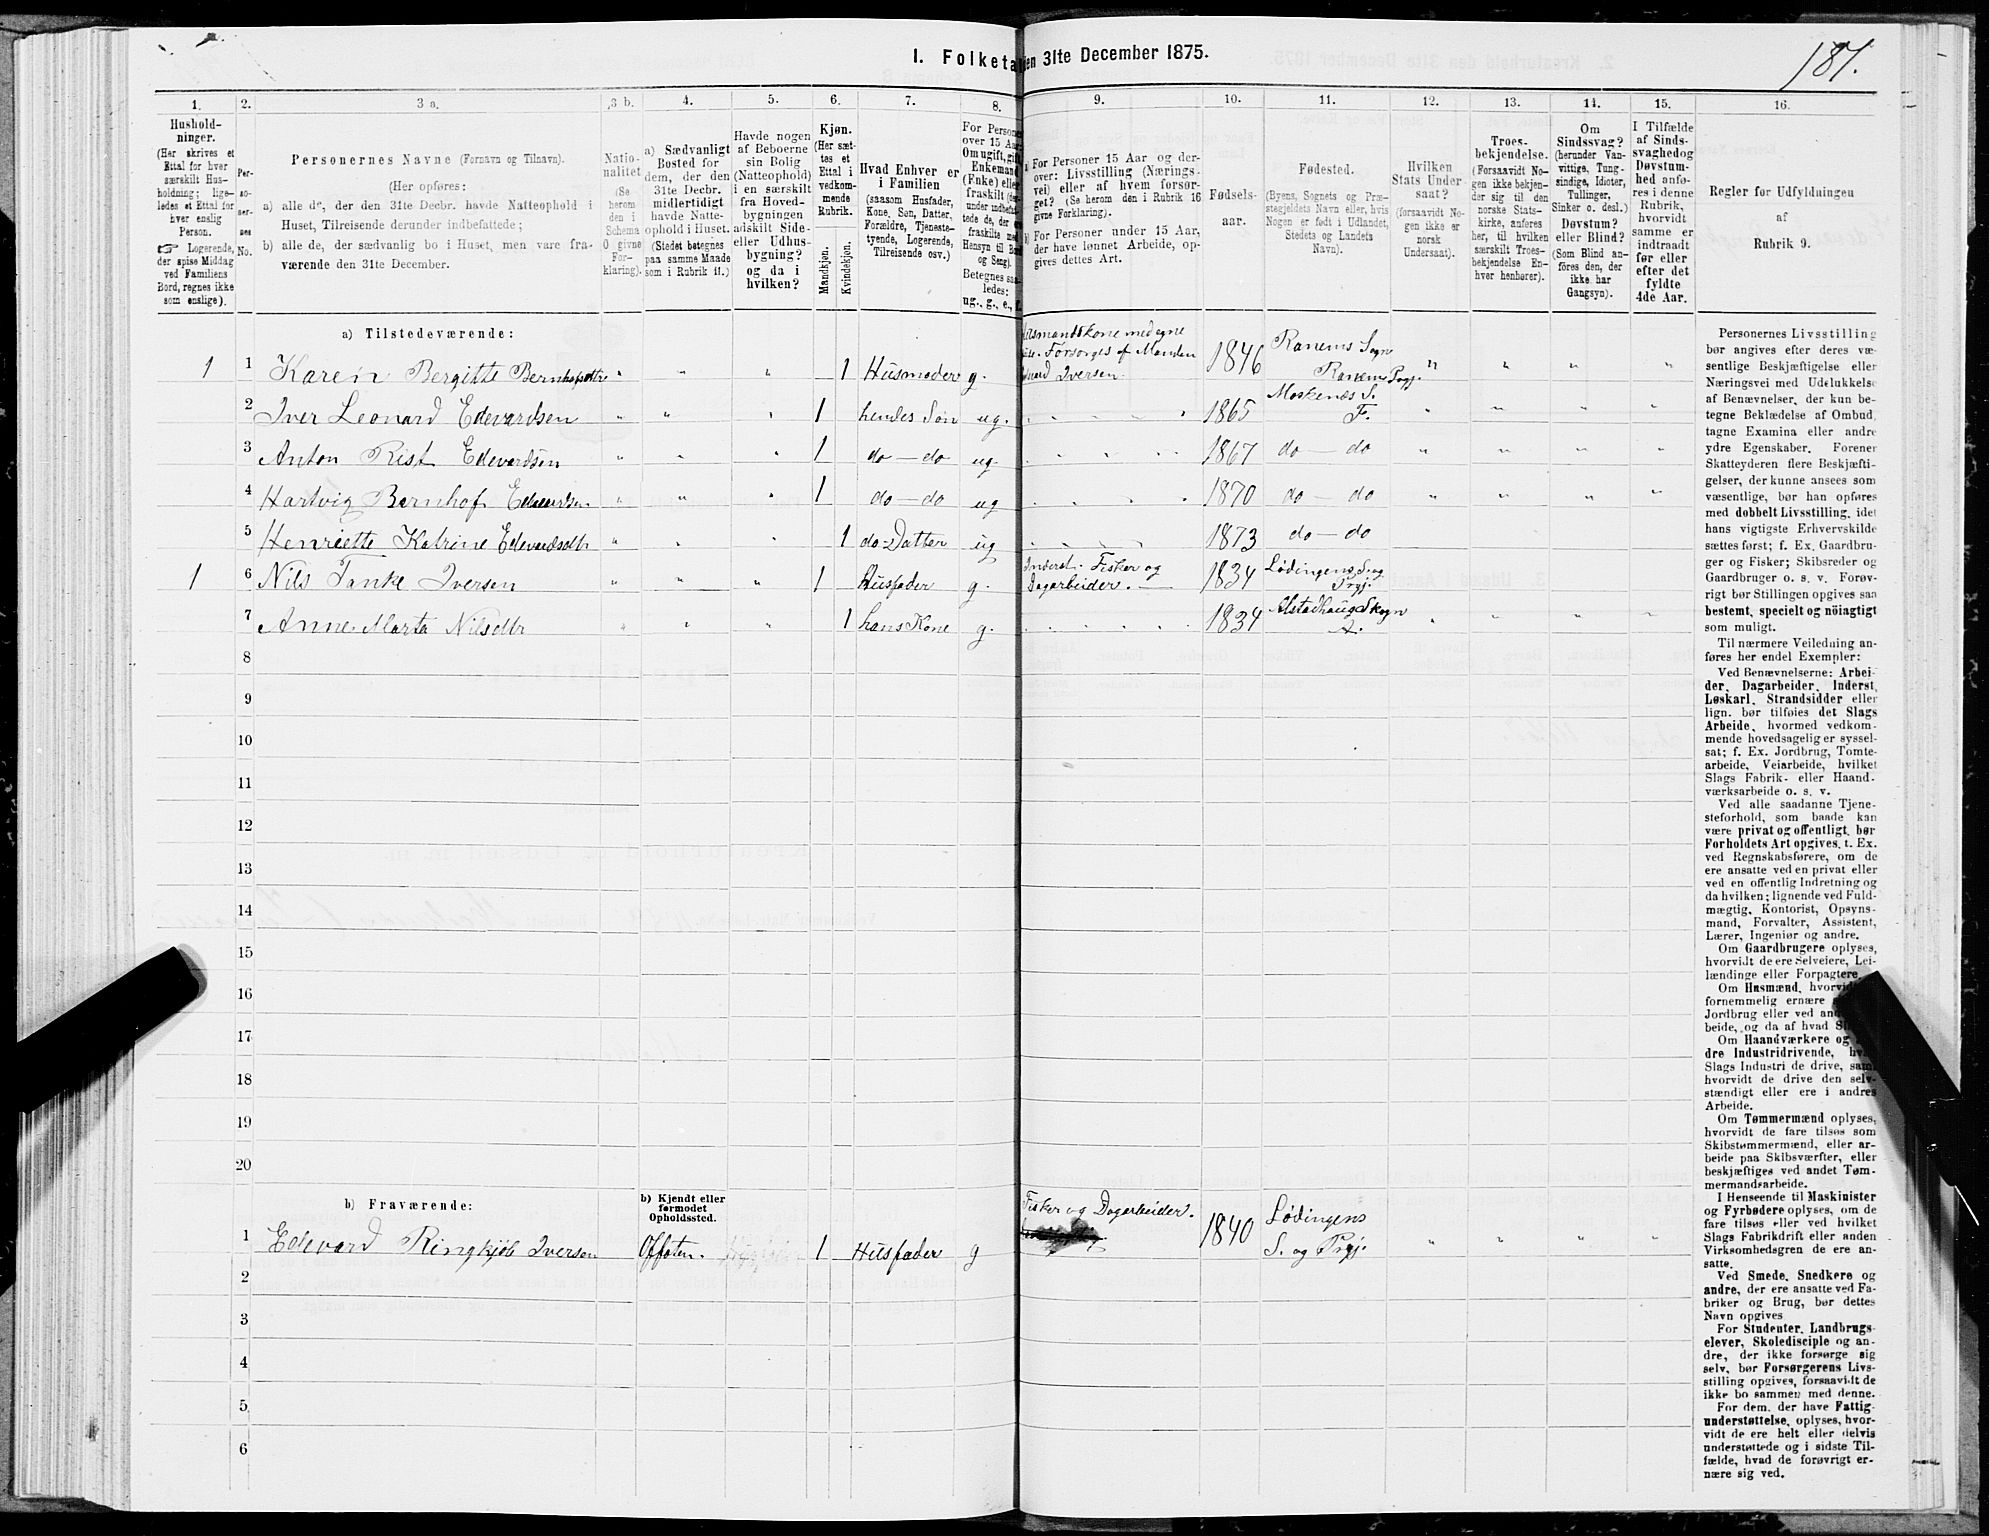 I. Folketa en 31te December 1875.
181.
1. 2. 3 a. 3 b. 4. 5. 6. 7. 8. 9. 10. 11. 12. 13. 14. 15. 16.
Hushold-
ninger.
(Her skrives et
Ettal for hver
særskilt Hus-
holdning; lige-
ledes et Ettal for
hver enslig
Person.
☞ Logerende,
der spise Middag
ved Familiens
Bord, regnes ikke
som enslige).
Per-
so-
ner-
nes
No.
Personernes Navne (Fornavn og Tilnavn).
(Her opføres:
a) alle de, der den 31te Decbr. havde Natteophold i
Huset, Tilreisende derunder indbefattede;
b) alle de, der sædvanlig bo i Huset, men vare fra-
værende den 31te December.
Natio-
nalitet
(Se
herom
den i
Schema
O givne
For-
klaring).
a) Sædvanligt
Bosted for
dem, der den
31te Decbr.
midlertidigt
havde Natte-
ophold i Huset.
(Stedet betegnes
paa samme Maade
som i Rubrik 11.)
Havde nogen
af Beboerne
sin Bolig
(Natteophold)
i en særskilt
fra Hoved-
bygningen
adskilt Side-
eller Udhus-
bygning?
og da i
hvilken?
Kjøn.
(Her sæt-
tes et
Ettal i
vedkom-
mende
Rubrik.
Mandkjøn.
Kvindekjøn.
Hvad Enhver er
i Familien
(saasom Husfader,
Kone, Søn, Datter,
Forældre, Tjeneste-
tyende, Logerende,
Tilreisende osv.)
For Persone
over 15 Aar
Om ugift, gift
Enkemand
(Enke) elle
fraskilt
Betegnes saa-
ledes:
ug., g., e.,
For Personer 15 Aar og der-
over: Livsstilling (Nærings-
vei) eller af hvem forsør-
get? (Se herom den i Rubrik 16
givne Forklaring).
b) For Personer under 15 Aar,
der have lønnet Arbeide, op-
gives dettes Art.
Fødsels-
aar.
Fødested.
(Byens, Sognets og Præ-
stegjeldets Navn eller, hvis
Nogen er født i Udlandet,
Stedets og Landets
Navn).
Hvilken
Stats Under-
saat?
(forsaavidt No-
gen ikke er
norsk
Undersaat).
Troes-
bekjendelse.
(Forsaavidt No-
gen ikke bekjen-
der sig til den
norske Stats-
kirke, anføres
her, til hvilken
særskilt Troes-
bekjendelse En-
hver henhører).
Om
Sindssvag?
(herunder Van-
vittige, Tung-
sindige, Idioter,
Tullinger,
Sinker o. desl.)
Døvstum?
eller Blind?
(Som Blind an-
føres den, der
ikke har
Gangsyn).
I Tilfælde
af Sinds-
svaghed og
Døvstum-
hed anfø-
res i denne
Rubrik,
hvorvidt
samme er
indtraadt
før eller
efter det
fyldte
4de Aar.
Regler for Udfyldningen
af
Rubrik 9.
a) Tilstedeværende:
1 1 Karen Bergitte Bernhofsdtr " " " 1 Husmoder g. smandskone med egne
Forsorges af Manden
Iversen. 1846 Ranems Sogn
Ranems Pgj. " " " "
2 Iver Leonard Edevardsen " " " 1 hendes Søn ug. 1865 Moskenæs S.
F. " " " "
3 Anton Rist Edevardsen " " " 1 do — do ug. 1867 do — do " " " "
4 Hartvig Bernhof Edevardsen " " " 1 do — do ug 1870 do — do " " " "
5 Henriette Katrine Edevardsdtr " " " 1 do-Datter ug 1873 do — do
1 6 Nils Janke Iversen " " " 1 Husfader g. Inderst. Fisker og
Dagarbeider. — 1834 Lødingens S. og
Prgj.
7 Anne Marta Nilsdtr " " " 1 hans Kone g. 1834 Alstadhaug Skogn
A. " " " "
8
9
10
11
12
13
14
15
16
17
18
19
20
b) Fraværende:
b) Kjendt eller
formodet
Opholdssted.
1 Edevard Ringkjøb Iversen Ofoten. 1 Husfader g Fisker og Dagarbeider. 1840 Lødingens
S. og Prgj. " " " "
2
3
4
5
6
Personernes Livsstilling
bør angives efter deres væ-
sentlige Beskjæftigelse eller
Næringsvei med Udelukkelse
af Benævnelser, der kun be-
tegne Beklædelse af Ombud,
tagne Examina eller andre
ydre Egenskaber. Forener
Skatteyderen flere Beskjæfti-
gelser, der kunne ansees som
væsentlige, bør han opføres
med dobbelt Livsstilling, idet
hans vigtigste Erhvervskilde
sættes først; f. Ex. Gaardbru-
ger og Fisker; Skibsreder og
Gaardbruger o. s. v. Forøv-
rigt bør Stillingen opgives saa
bestemt, specielt og nøiagtigt
som muligt.
Til nærmere Veiledning an-
føres her endel Exempler:
Ved Benævnelserne: Arbei-
der, Dagarbeider, Inderst,
Løskarl, Strandsidder eller
lign. bør tilføies det Slags
Arbeide, hvormed vedkom-
mende hovedsagelig er syssel-
sat; f. Ex. Jordbrug, Tomte-
arbeide, Veiarbeide, hvilket
Slags Fabrik- eller Haand-
værksarbeide o. s. v.
Ved alle saadanne Tjene-
steforhold, som baade kan
være privat og offentligt, bør
Forholdets Art opgives, t. Ex.
ved Regnskabsførere, om de
ere ansatte ved en privat eller
ved en offentlig Indretning og
da hvilken; lignende ved Fuld-
mægtig, Kontorist, Opsyns-
mand, Forvalter, Assistent,
Lærer, Ingeniør og andre.
Om Gaardbrugere oplyses,
hvorvidt de ere Selveiere, Lei-
lændinge eller Forpagtere.
Om Husmænd, hvorvid
fornemmelig ernære
Jordbrug eller ved an
beide, og da af hvad
Om Haandværkere og
dre Industridrivende,
Slags Industri de drive, samt
hvorvidt de drive den selv-
stændigt eller ere i andres
Arbeide.
Om Tømmermænd oplyses,
hvorvidt de fare tilsøs som
Skibstømmermænd, eller ar-
beide paa Skibsværfter, eller
beskjæftiges ved andet Tøm-
mermandsarbeide.
I Henseende til Maskinister
og Fyrbødere oplyses, om de
fare tilsøs eller ved hvilket
Slags Fabrikdrift eller anden
Virksomhedsgren de ere an-
satte.
Ved Smede, Snedkere og
andre, der ere ansatte ved Fa-
briker og Brug, bør dettes
Navn opgives
For Studenter, Landbrugs-
elever, Skoledisciple og an-
dre, der ikke forsørge sig
selv, bør Forsørgerens Livs-
stilling opgives, forsaavidt de
ikke bo sammen med denne.
For dem, der have Fattig-
understøttelse, oplyses, hvor-
vidt de ere helt eller delvis
understøttede og i sidste Til-
fælde, hvad de forøvrigt er-
nære sig ved.